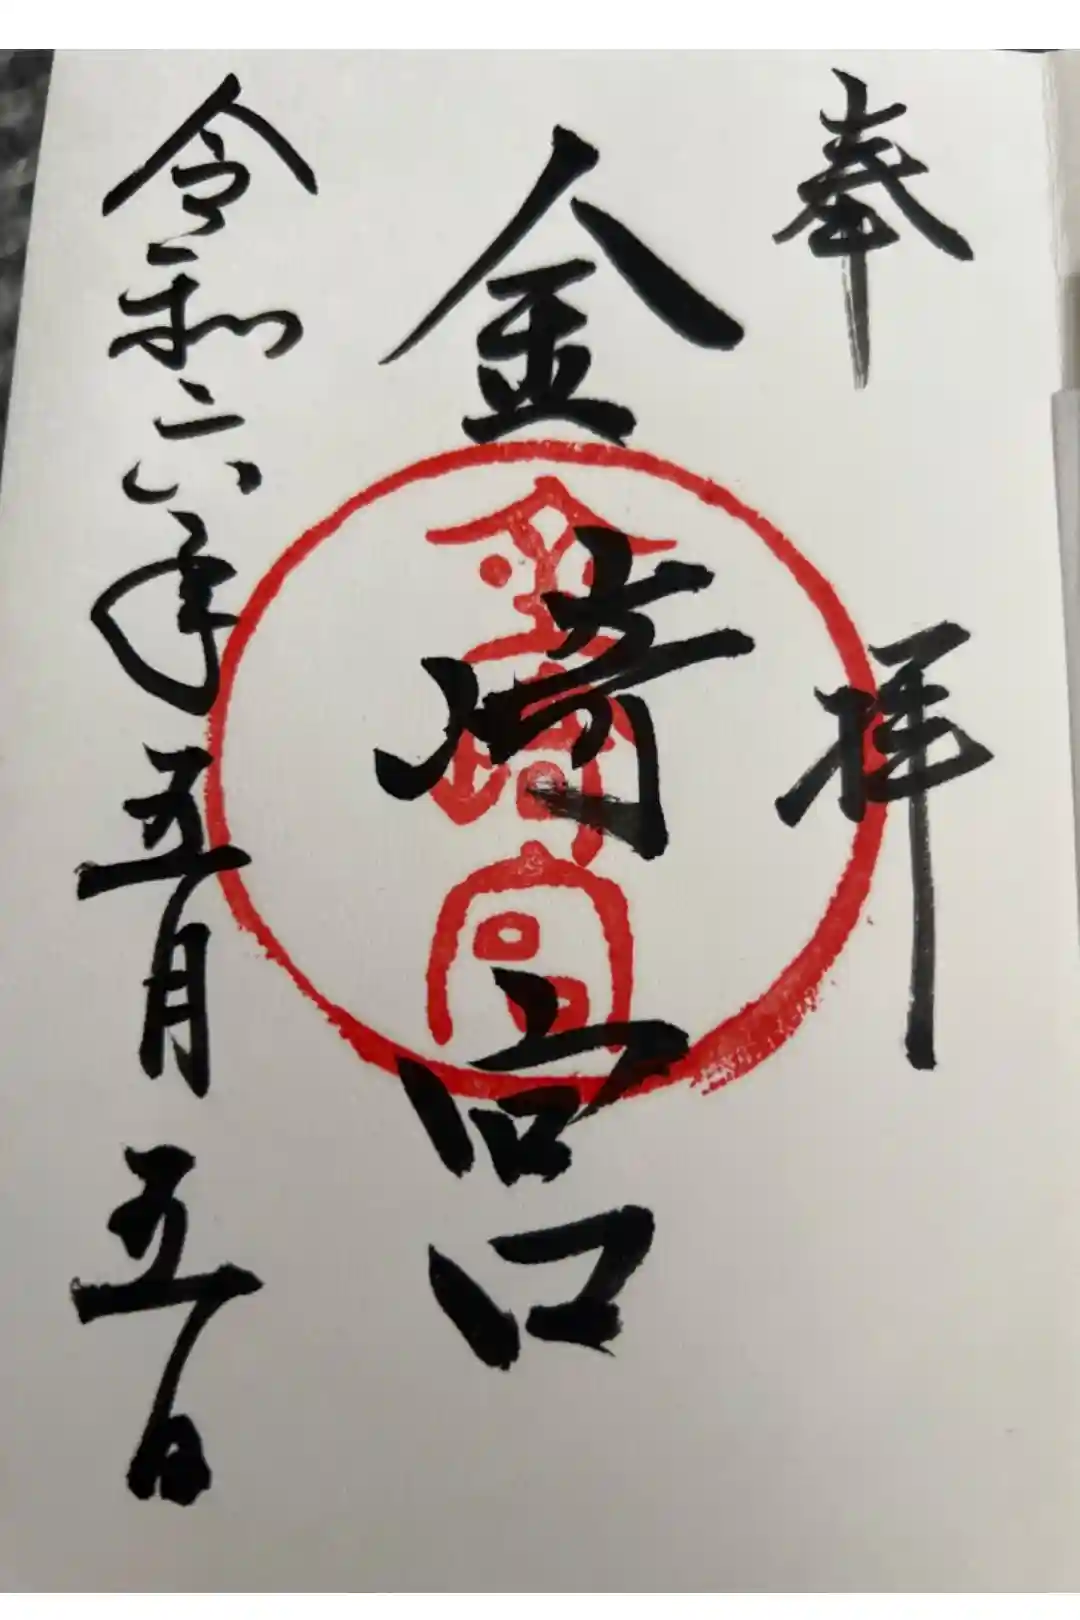 奉拝
金崎宮
金崎宮
令和六年五月五日